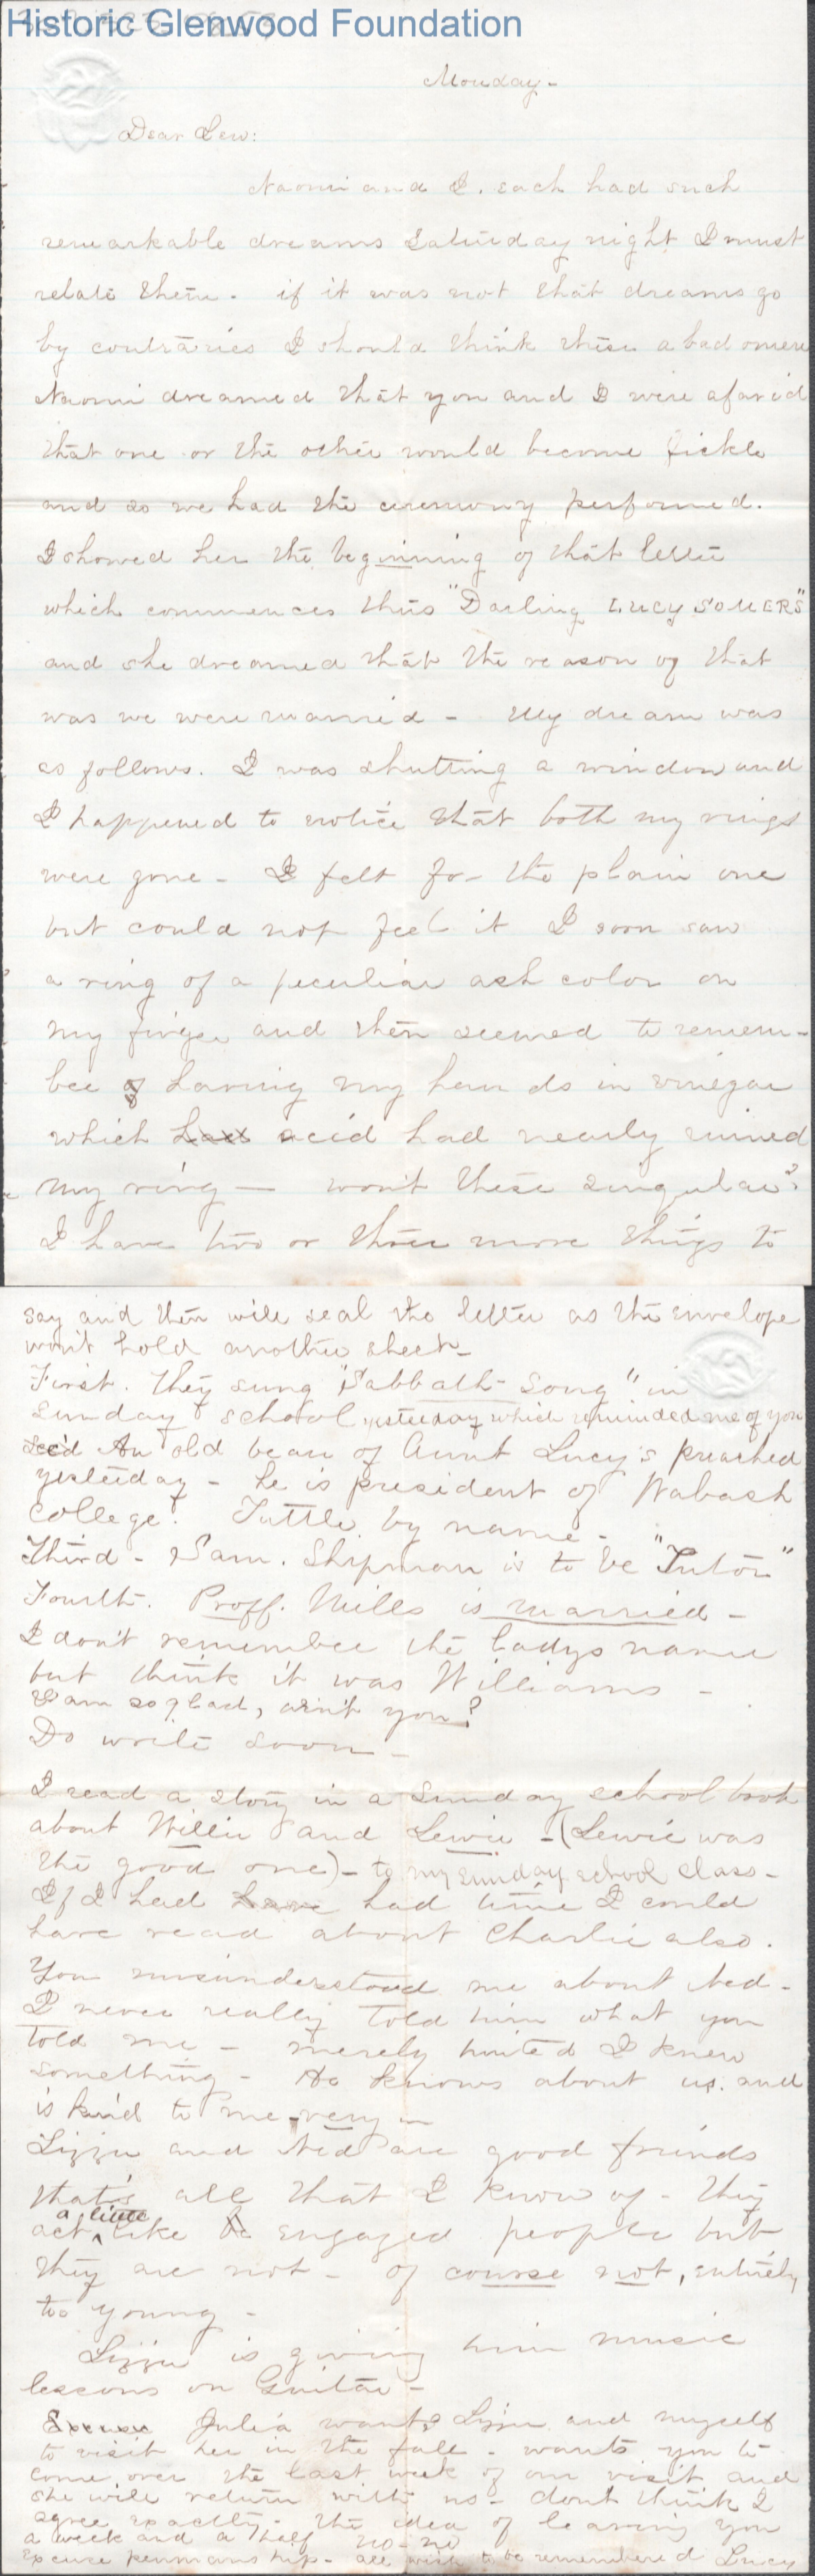 Historic Glenwood Foundation
Monday-
Dear Lew:
Naomi and I. each had such
remarkable dreams Saturday night I must
relate them. if it was not that dreams go
by contraries I should think these a bad omen
Naomi dreamed that you and I were afaraid
that one or the other would become fickle
and so we had the ceremony performed.
I showed her the beginning of that letter
which commences thus "Darling LUCY SOMERS"
and she dreamed that the reason of that
was we were married - My dream was
as follows. I was shutting a window and
I happened to notice that both my rings
were gone - I felt for the plain one
but could not feel it I soon saw
a ring of a peculiar ash color on
my finger and then seemed to remem-
ber of having my hands in vinegar
which had acid had nearly ruined
my ring - won't these singular?
I have two or three more things to
say and then will seal the letter as the envelope
won't hold another sheet-
First. They sung "Sabbath Song" in
Sunday school yesterday which reminded me of you
Sec'd An old beau of Aunt Lucy's preached
yesterday - he is president of Wabash
College. Tuttle by name -
Third - Sam. Shipman is to be "Tutor"
Fourth. Proff. Mills is married -
I don't remember the ladys name
but think it was Williams -
I am so glad, ain't you?
Do write soon -
I read a story in a Sunday school book
about Willie and Lewie - (Lewie was
the good one) - to my sunday school class -
If I had have had time I could
have read about Charlie also.
You misunderstood me about Ned -
I never really told him what you
told me - merely hinted I knew
something - He knows about us. and
is kind to me very -
Lizzie and Ned are good friends
that's all that I know of - They
act a little like engaged people but
they are not - of course not, entirely
too young -
Lizzie is giving him music
lessons on Guitar -
Excuse Julia wants Lizzie and myself
to visit her in the fall - wants you to
come over the last week of our visit and
she will return with us - dont think I
agree exactly - the idea of leaving you
a week and a half no-no
Excuse penmanship - all wish to be remembered Lucy